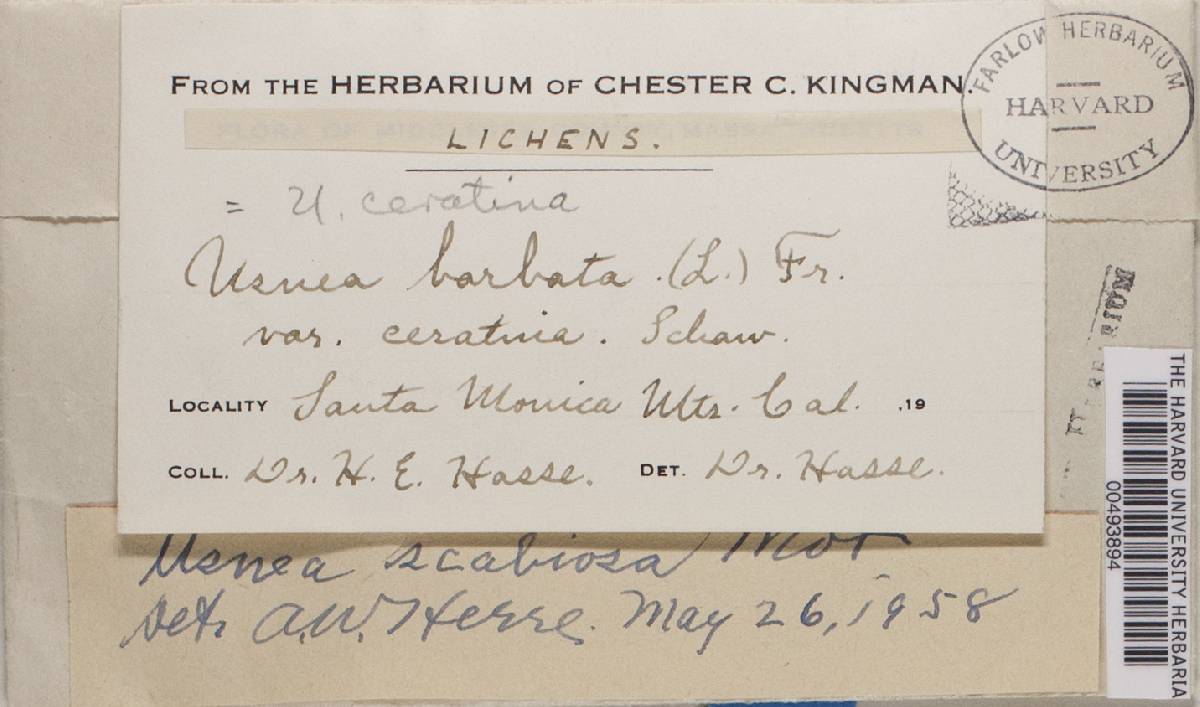 FROM THE HERBARIUM OF CHESTER C. KINGMAN.
LICHENS.
= U. ceratina
Usnea barbata . (L.) Fr.
var. ceratina . Schaw.
LOCALITY Santa Monica Mts. Cal. ,19
COLL. Dr. H. E. Hasse. DET. Dr. Hasse.
Usnea scabiosa Mot
det. A.W. Herre. May 26, 1958
FARLOW HERBARIUM
HARVARD
UNIVERSITY
THE HARVARD UNIVERSITY HERBARIA
00493894